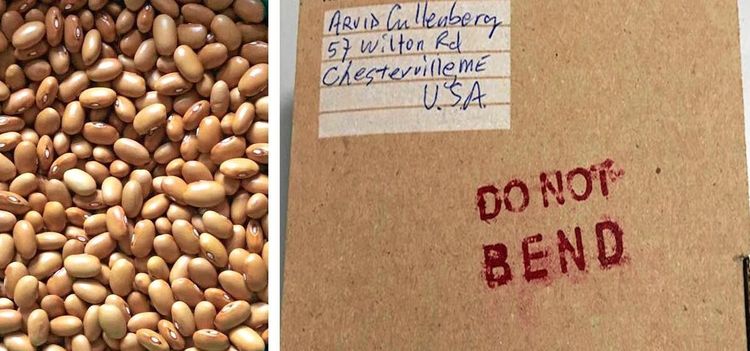 ARVID Cullenberg
57 Wilton Rd
Chesterville ME
U.S.A.
DO NOT
BEND